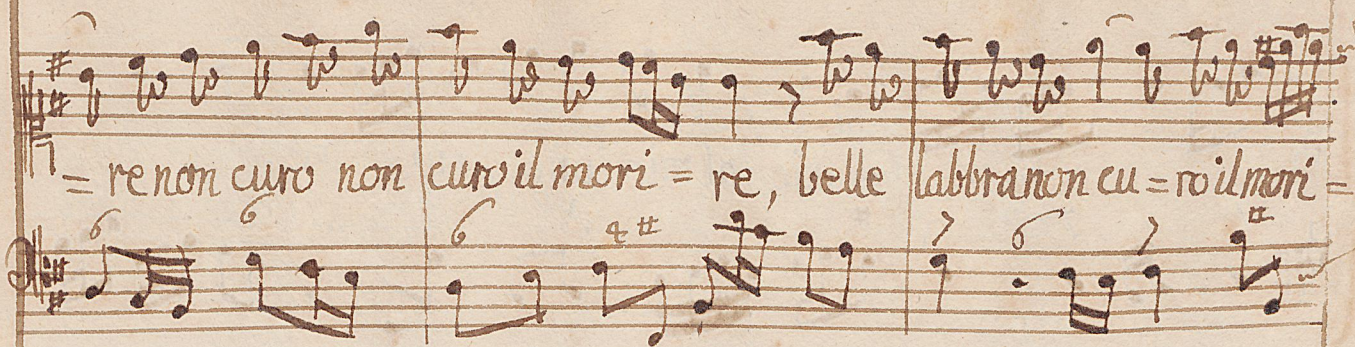 = re non curo non curo il mori = re, belle labbra non cu = ro il mori =
6 6 6 4 # 7 6 7 #